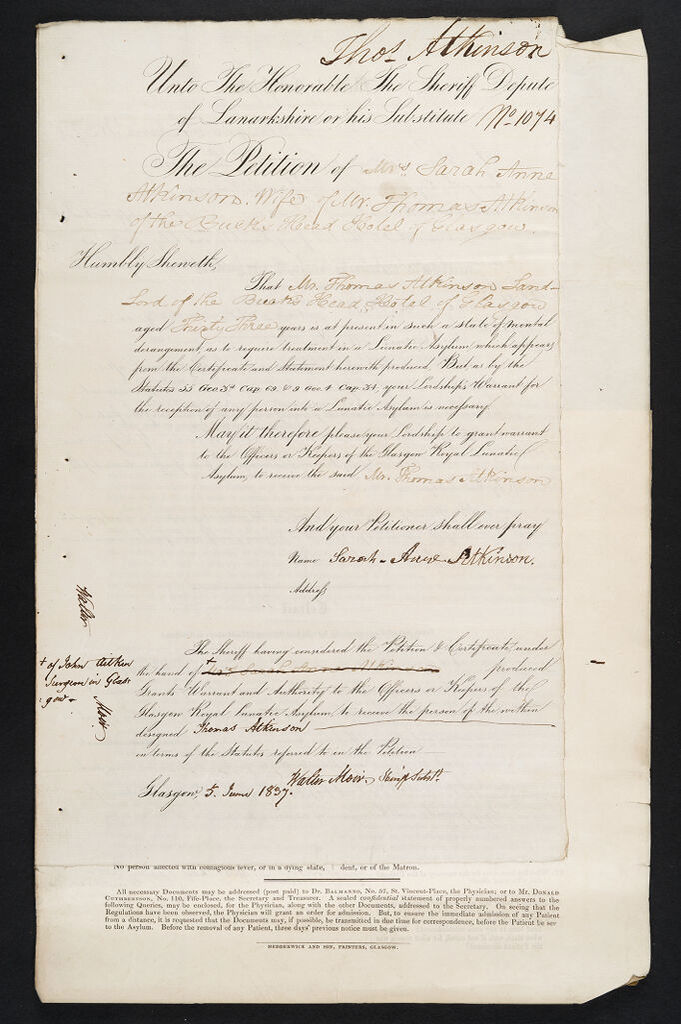 Thos. Atkinson
Unto The Honorable The Sheriff Depute
of Lanarkshire or his Substitute No. 1074
The Petition of Mrs. Sarah Anne
Atkinson. Wife of Mr. Thomas Atkinson
of the Bucks Head Hotel of Glasgow.
Humbly Sheweth,
That Mr. Thomas Atkinson Land-
Lord of the Bucks Head Hotel of Glasgow
aged Thirty Three years is at present in such a state of mental
derangement, as to require treatment in a Lunatic Asylum which appears
from the Certificate and Statement herewith produced. But as by the
Statutes 55 Geo. 3d Cap. 69 & 9 Geo. 4 Cap. 34, your Lordship's Warrant for
the reception of any person into a Lunatic Asylum is necessary.
May it therefore please your Lordship to grant warrant
to the Officers or Keepers of the Glasgow Royal Lunatic
Asylum, to receive the said Mr. Thomas Atkinson
And your Petitioner shall ever pray
Name Sarah-Anne Atkinson.
Address
The Sheriff having considered the Petition & Certificate, under
the hand of + Mrs Sarah Anne Atkinson produced
Grants Warrant and Authority to the Officers or Keepers of the
Glasgow Royal Lunatic Asylum, to receive the person of the within
designed Thomas Atkinson
in terms of the Statutes referred to in the Petition
Walter Moir. Sherriff Subst.
Glasgow, 5. June 1837.
Walter
+ of John Aitken
Surgeon in Glas-
gow-
Moir.
No person affected with contagious fever, or in a dying state, dent, or of the Matron.
All necessary Documents may be addressed (post paid) to Dr. Balmanno, No. 57, St. Vincent-Place, the Physician; or to Mr. Donald
Cuthbertson, No. 110, Fife-Place, the Secretary and Treasurer. A sealed confidential statement of properly numbered answers to the
following Queries, may be enclosed, for the Physician, along with the other Documents, addressed to the Secretary. On seeing that the
Regulations have been observed, the Physician will grant an order for admission. But, to ensure the immediate admission of any Patient
from a distance, it is requested that the Documents may, if possible, be transmitted in due time for correspondence, before the Patient be sent
to the Asylum. Before the removal of any Patient, three days' previous notice must be given.
HEDDERWICK AND SON, PRINTERS, GLASGOW.